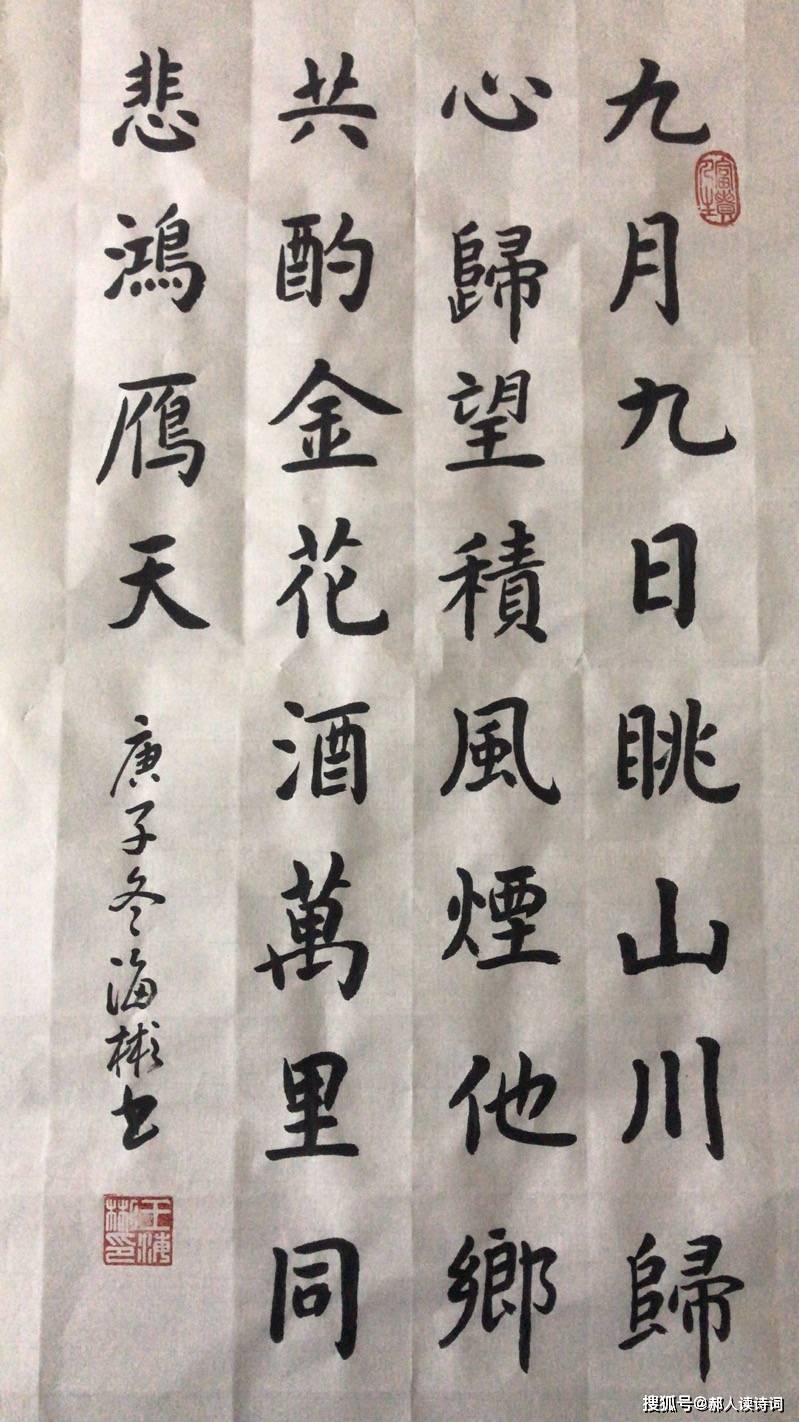 九月九日眺山川歸
心歸望積風煙他鄉
共酌金花酒萬里同
悲鴻鴈天
庚子冬海彬书
富貴
王海彬印
搜狐号@郝人读诗词